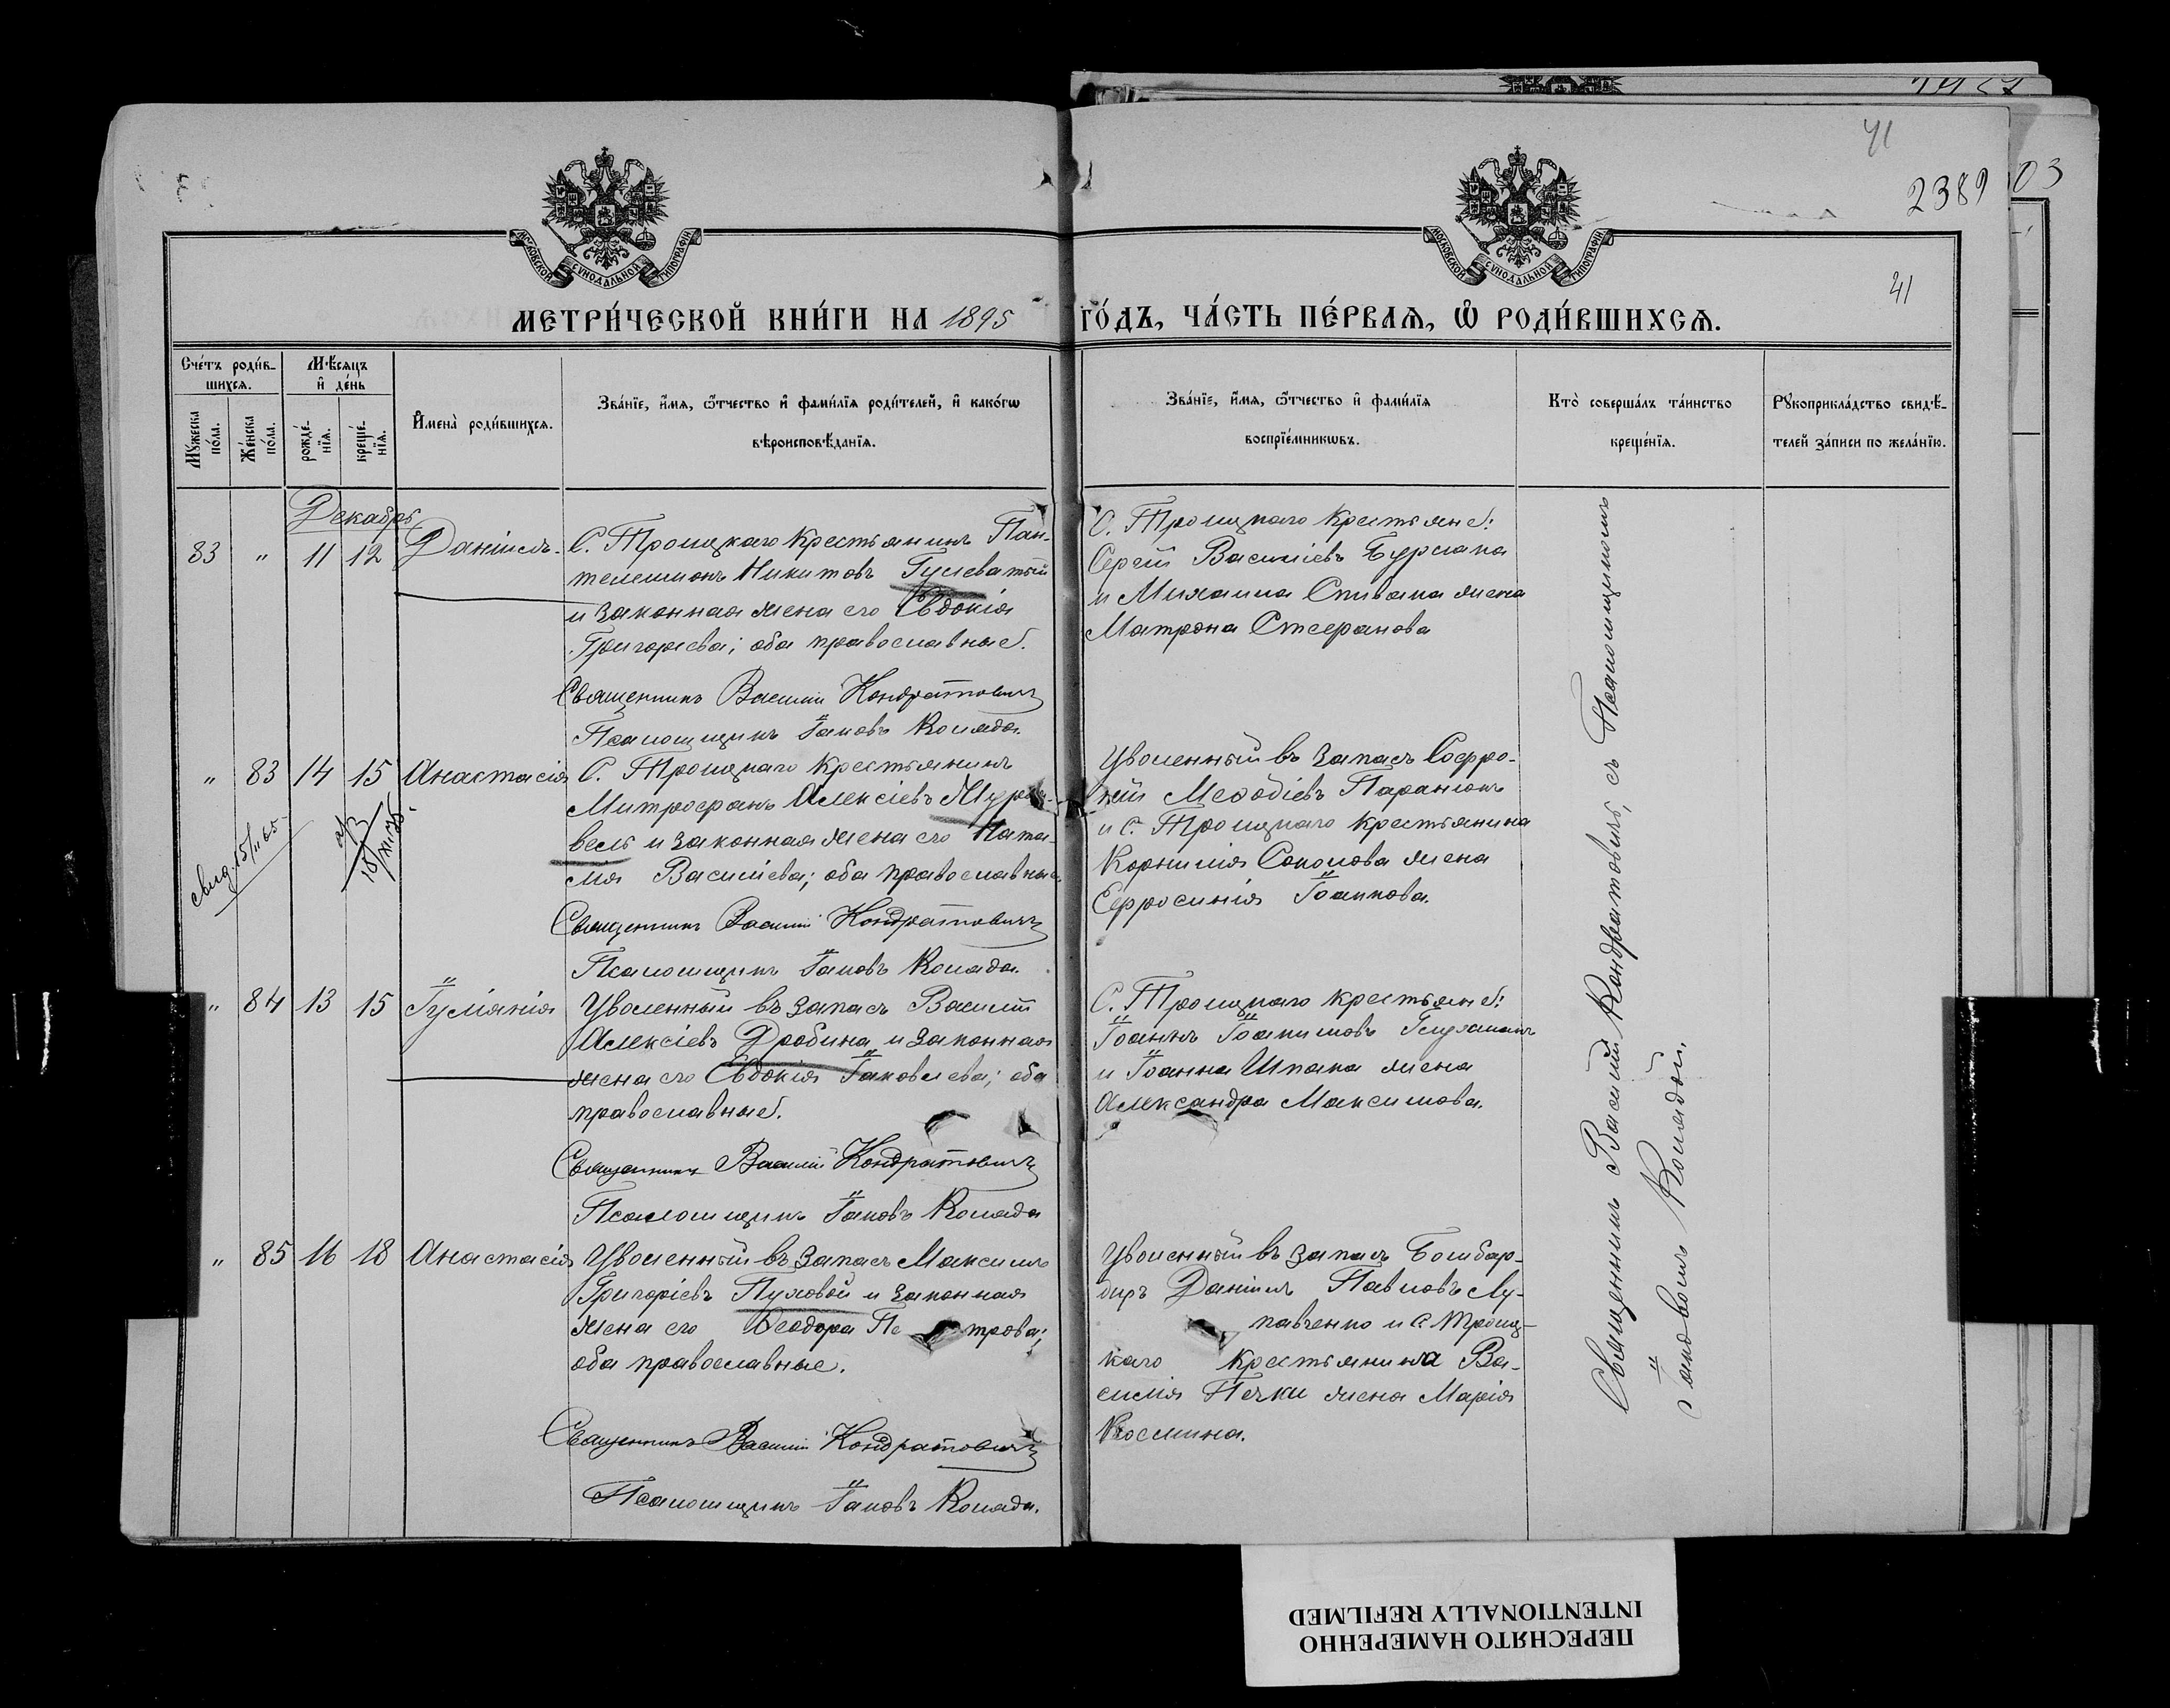 41
2389
03
41
МОСКОВСКОЙ СѴНОДАЛЬНОЙ ТИПОГРАФІИ
МОСКОВСКОЙ СѴНОДАЛЬНОЙ ТИПОГРАФІИ
МЕТРИ́ЧЕСКОЙ КНИ́ГИ НА 1895 ГО́ДЪ, ЧА́СТЬ ПЕ́РВАѦ, Ѡ РОДИ́ВШИХСѦ.
Сче́тъ роди́в-
шихсѧ.
Мѣ́сѧцъ
и҆ де́нь
Мꙋ́жеска по́ла.
Же́нска по́ла.
рожде́-нїѧ.
креще́-нїѧ.
И҆мена̀ роди́вшихсѧ.
Зва́нїе, и҆́мѧ, ѻ҆́тчество и҆ фами́лїѧ роди́телей, и҆ како́гѡ
вѣроисповѣ́данїѧ.
Зва́нїе, и҆́мѧ, ѻ҆́тчество и҆ фами́лїѧ
воспрїе́мникѡвъ.
Кто̀ соверша́лъ та́инство
креще́нїѧ.
Рꙋкоприкла́дство свидѣ́-
телей за́писи по жела́нїю.
Декабрь
83 " 11 12 Даніилъ.
С. Троицкаго крестьянинъ Пан-
телеимонъ Никитовъ Гулеватый
и законная жена его Евдокія
Григоріева; оба православные.
Священникъ Василій Кондратовичъ
Псаломщикъ Іаковъ Коляда.
С. Троицкаго крестьяне:
Сергій Василіевъ Бурлака
и Михаила Спивака жена
Матрона Стефанова
" 83 14 15 Анастасія
С. Троицкаго крестьянинъ
Митрофанъ Алексіевъ Жура-
вель и законная жена его Ната-
лія Василіева; оба православные.
Священникъ Василій Кондратовичъ
Псаломщикъ Іаковъ Коляда.
Уволенный въ запасъ Софро-
ній Меѳодіевъ Паранюкъ
и С. Троицкаго крестьянина
Корнилія Соколова жена
Ефросинія Іоаннова.
" 84 13 15 Іуліанія
Уволенный въ запасъ Василій
Алексіевъ Дробина и законная
жена его Евдокія Іаковлева; оба
православные.
Священникъ Василій Кондратовичъ
Псаломщикъ Іаковъ Коляда
С. Троицкаго крестьяне:
Іоаннъ Іоакимовъ
и Іоанна Шпака жена
Александра Максимова.
" 85 16 18 Анастасія
Уволенный въ запасъ Максимъ
Григоріевъ Пуховой и законная
жена его Ѳеодора Петрова;
оба православные.
Священникъ Василій Кондратовичъ
Псаломщикъ Іаковъ Коляда.
Уволенный въ запасъ Бомбар-
диръ Даніилъ Павловъ Лу-
павченко и С. Троиц-
каго крестьянина Ва-
силія Печки жена Марія
Космина.
Священникъ Василій Кондратовичъ, съ Псаломщикомъ
Іаковомъ Колядой.
ПЕРЕСНЯТО НАМЕРЕННО
INTENTIONALLY REFILMED